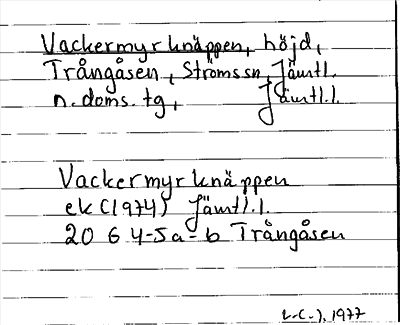 Vackermyrknäppen, höjd,
Trångåsen, Ströms sn, Jämtl.
n. doms. tg, Jämtl.l.
Vackermyrknäppen
ek (1974) Jämtl.l.
20 G 4-5a-b Trångåsen
1977